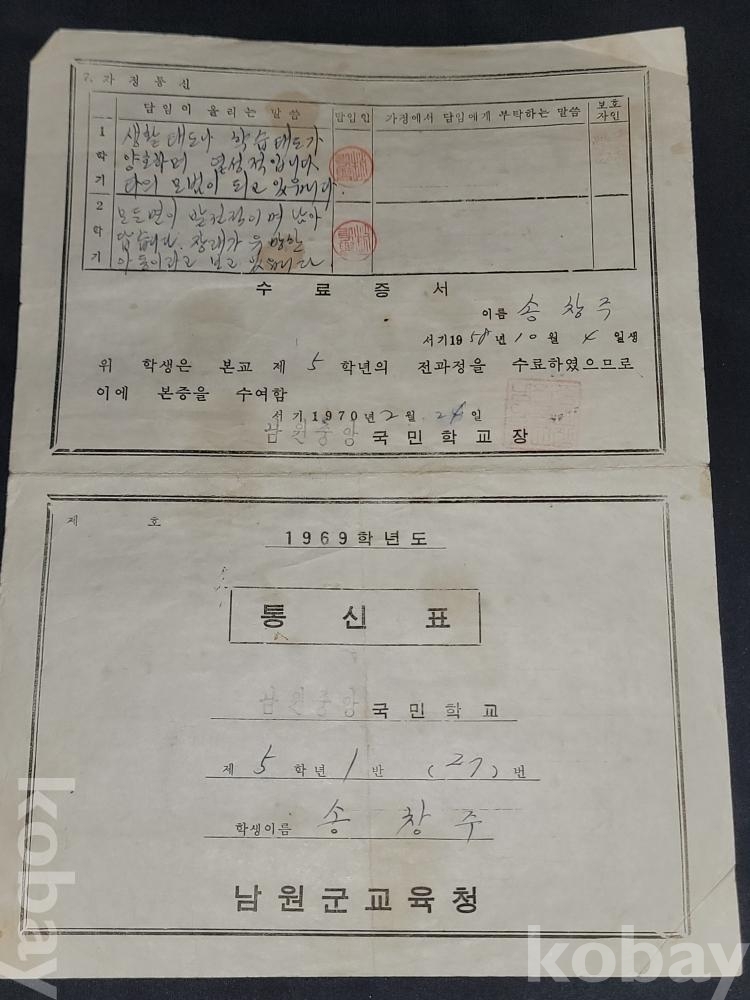 7. 가정통신
담임이 올리는 말씀 담임인 가정에서 담임에게 부탁하는 말씀 보호자인
1학기
생활태도나 학습태도가
양호하며 열성적입니다
타의 모범이 되고 있읍니다.
2학기
모든면이 발전적이며
장래가 유망한
아동이라고 보고 있읍니다
수료증서
이름 송창주
서기1958년 10월 4일생
위 학생은 본교 제 5 학년의 전과정을 수료하였으므로
이에 본증을 수여함
서기1970년 2월 24일
남원중앙국민학교장
제 호
1969학년도
통신표
남원중앙국민학교
제 5 학년 1 반 (27) 번
학생이름 송창주
남원군교육청
kobay
kobay